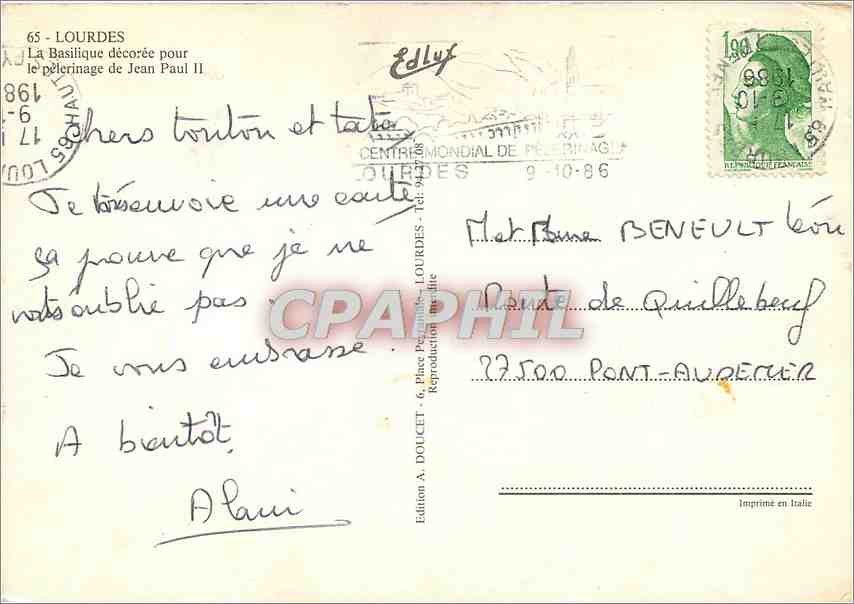 65 - LOURDES
La Basilique décorée pour
le pèlerinage de Jean Paul II
Edlux
1,90
REPUBLIQUE FRANÇAISE
CENTRE MONDIAL DE PELERINAGE
LOURDES 9-10-86
chers tonton et tata
Je vous envoie une carte
ça prouve que je ne
vous oublie pas.
Je vous embrasse.
A bientôt,
Alain
Edition A. DOUCET - 6, Place Peyramale - LOURDES - Tél: 94.27.08
Reproduction interdite
CPAPHIL
M et Mme BENEULT Léon
Route de Quillebeuf
27500 PONT-AUDEMER
Imprimé en Italie